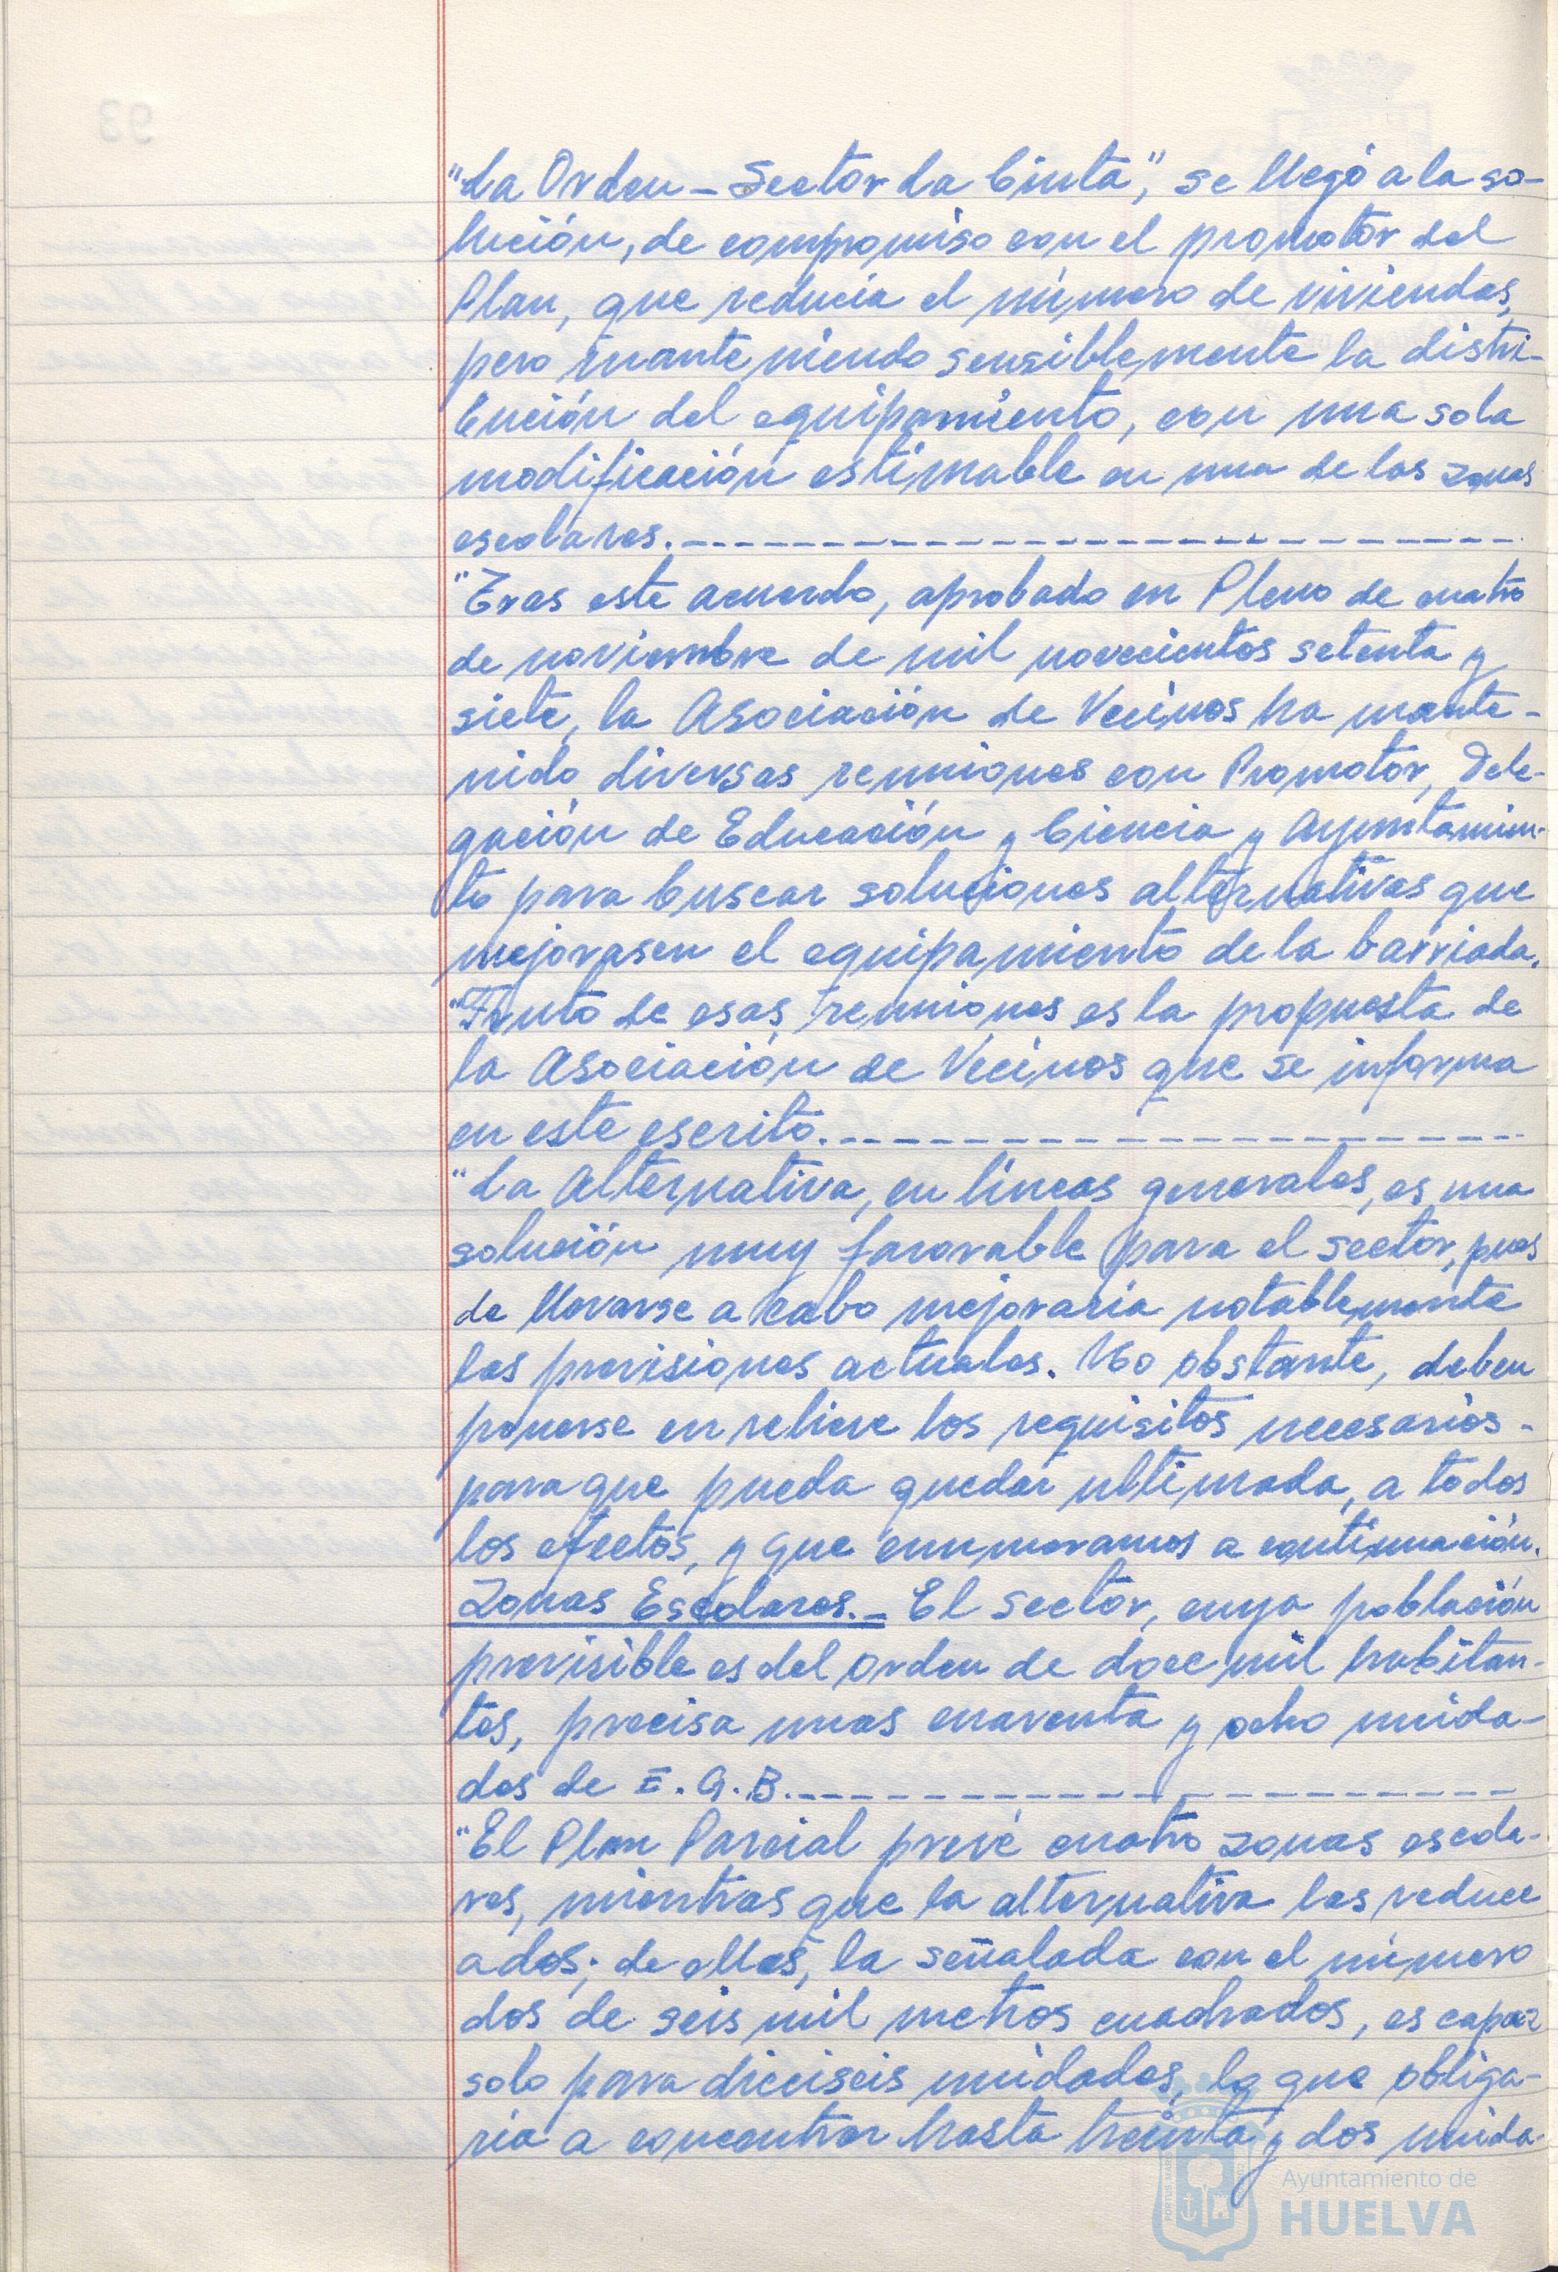 "La Orden - Sector La Cinta", se llegó a la so-
lución, de compromiso con el promotor del
Plan, que reducía el número de viviendas,
pero manteniendo sensiblemente la distri-
bución del equipamiento, con una sola
modificación estimable en una de las zonas
escolares.
"Tras este acuerdo, aprobado en Pleno de cuatro
de noviembre de mil novecientos setenta y
siete, la Asociación de Vecinos ha mante-
nido diversas reuniones con Promotor, Dele-
gación de Educación y Ciencia y Ayuntamien-
to para buscar soluciones alternativas que
mejorasen el equipamiento de la barriada.
"Fruto de esas reuniones es la propuesta de
la Asociación de Vecinos que se informa
en este escrito.
"La Alternativa, en líneas generales, es una
solución muy favorable para el sector, pues
de llevarse a cabo mejoraría notablemente
las previsiones actuales. No obstante, deben
ponerse en relieve los requisitos necesarios -
para que pueda quedar ultimada, a todos
los efectos, y que enumeramos a continuación.
Zonas Escolares.- El sector, cuya población
previsible es del orden de doce mil habitan-
tes, precisa unas cuarenta y ocho unida-
des de E.G.B.
"El Plan Parcial prevé cuatro zonas escola-
res, mientras que la alternativa las reduce
a dos; de ellas, la señalada con el número
dos de seis mil metros cuadrados, es capaz
solo para dieciseis unidades, lo que obliga-
ría a concentrar hasta treinta y dos unida-
Ayuntamiento de
HUELVA
93